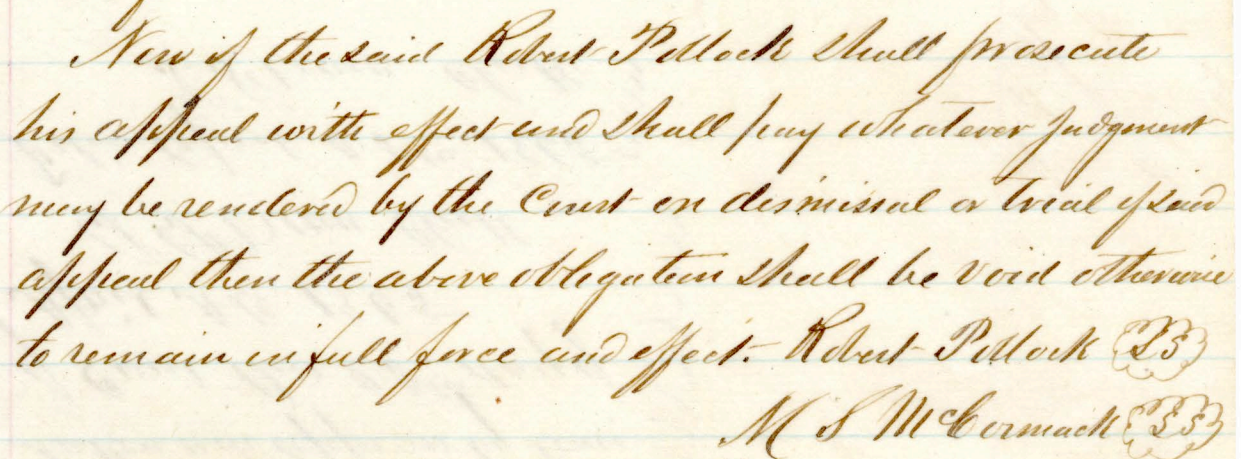 Now if the said Robert Pollock shall prosecute
his appeal with effect and shall pay whatever judgment
may be rendered by the Court on dismissal or trial of said
appeal then the above obligation shall be void otherwise
to remain in full force and effect. Robert Pollock LS
M S McCormack LS